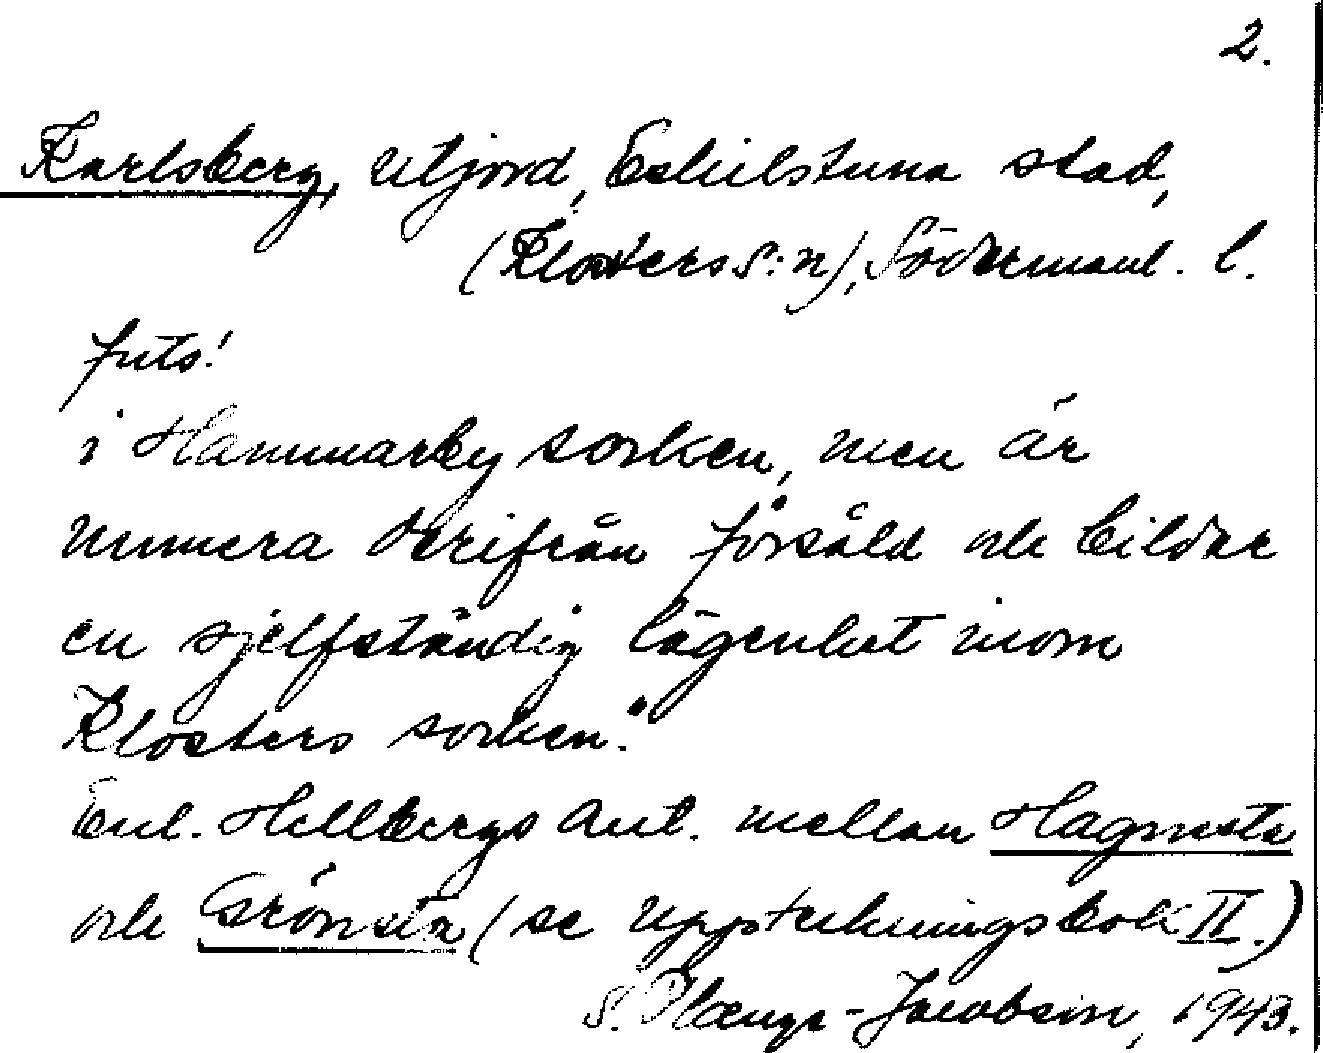 2.
Karlsberg, utjord, Eskilstuna stad,
(Klosters s:n), Södermanl. l.
futs!
i Hammarby socken, men är
numera derifrån försåld och bildar
en sjelfständig lägenhet inom
Klosters socken."
Enl. Hellbergs Ant. mellan Hagnesta
och Grönsta (se uppteckningsbok II.)
S. -Jacobsson, 1943.